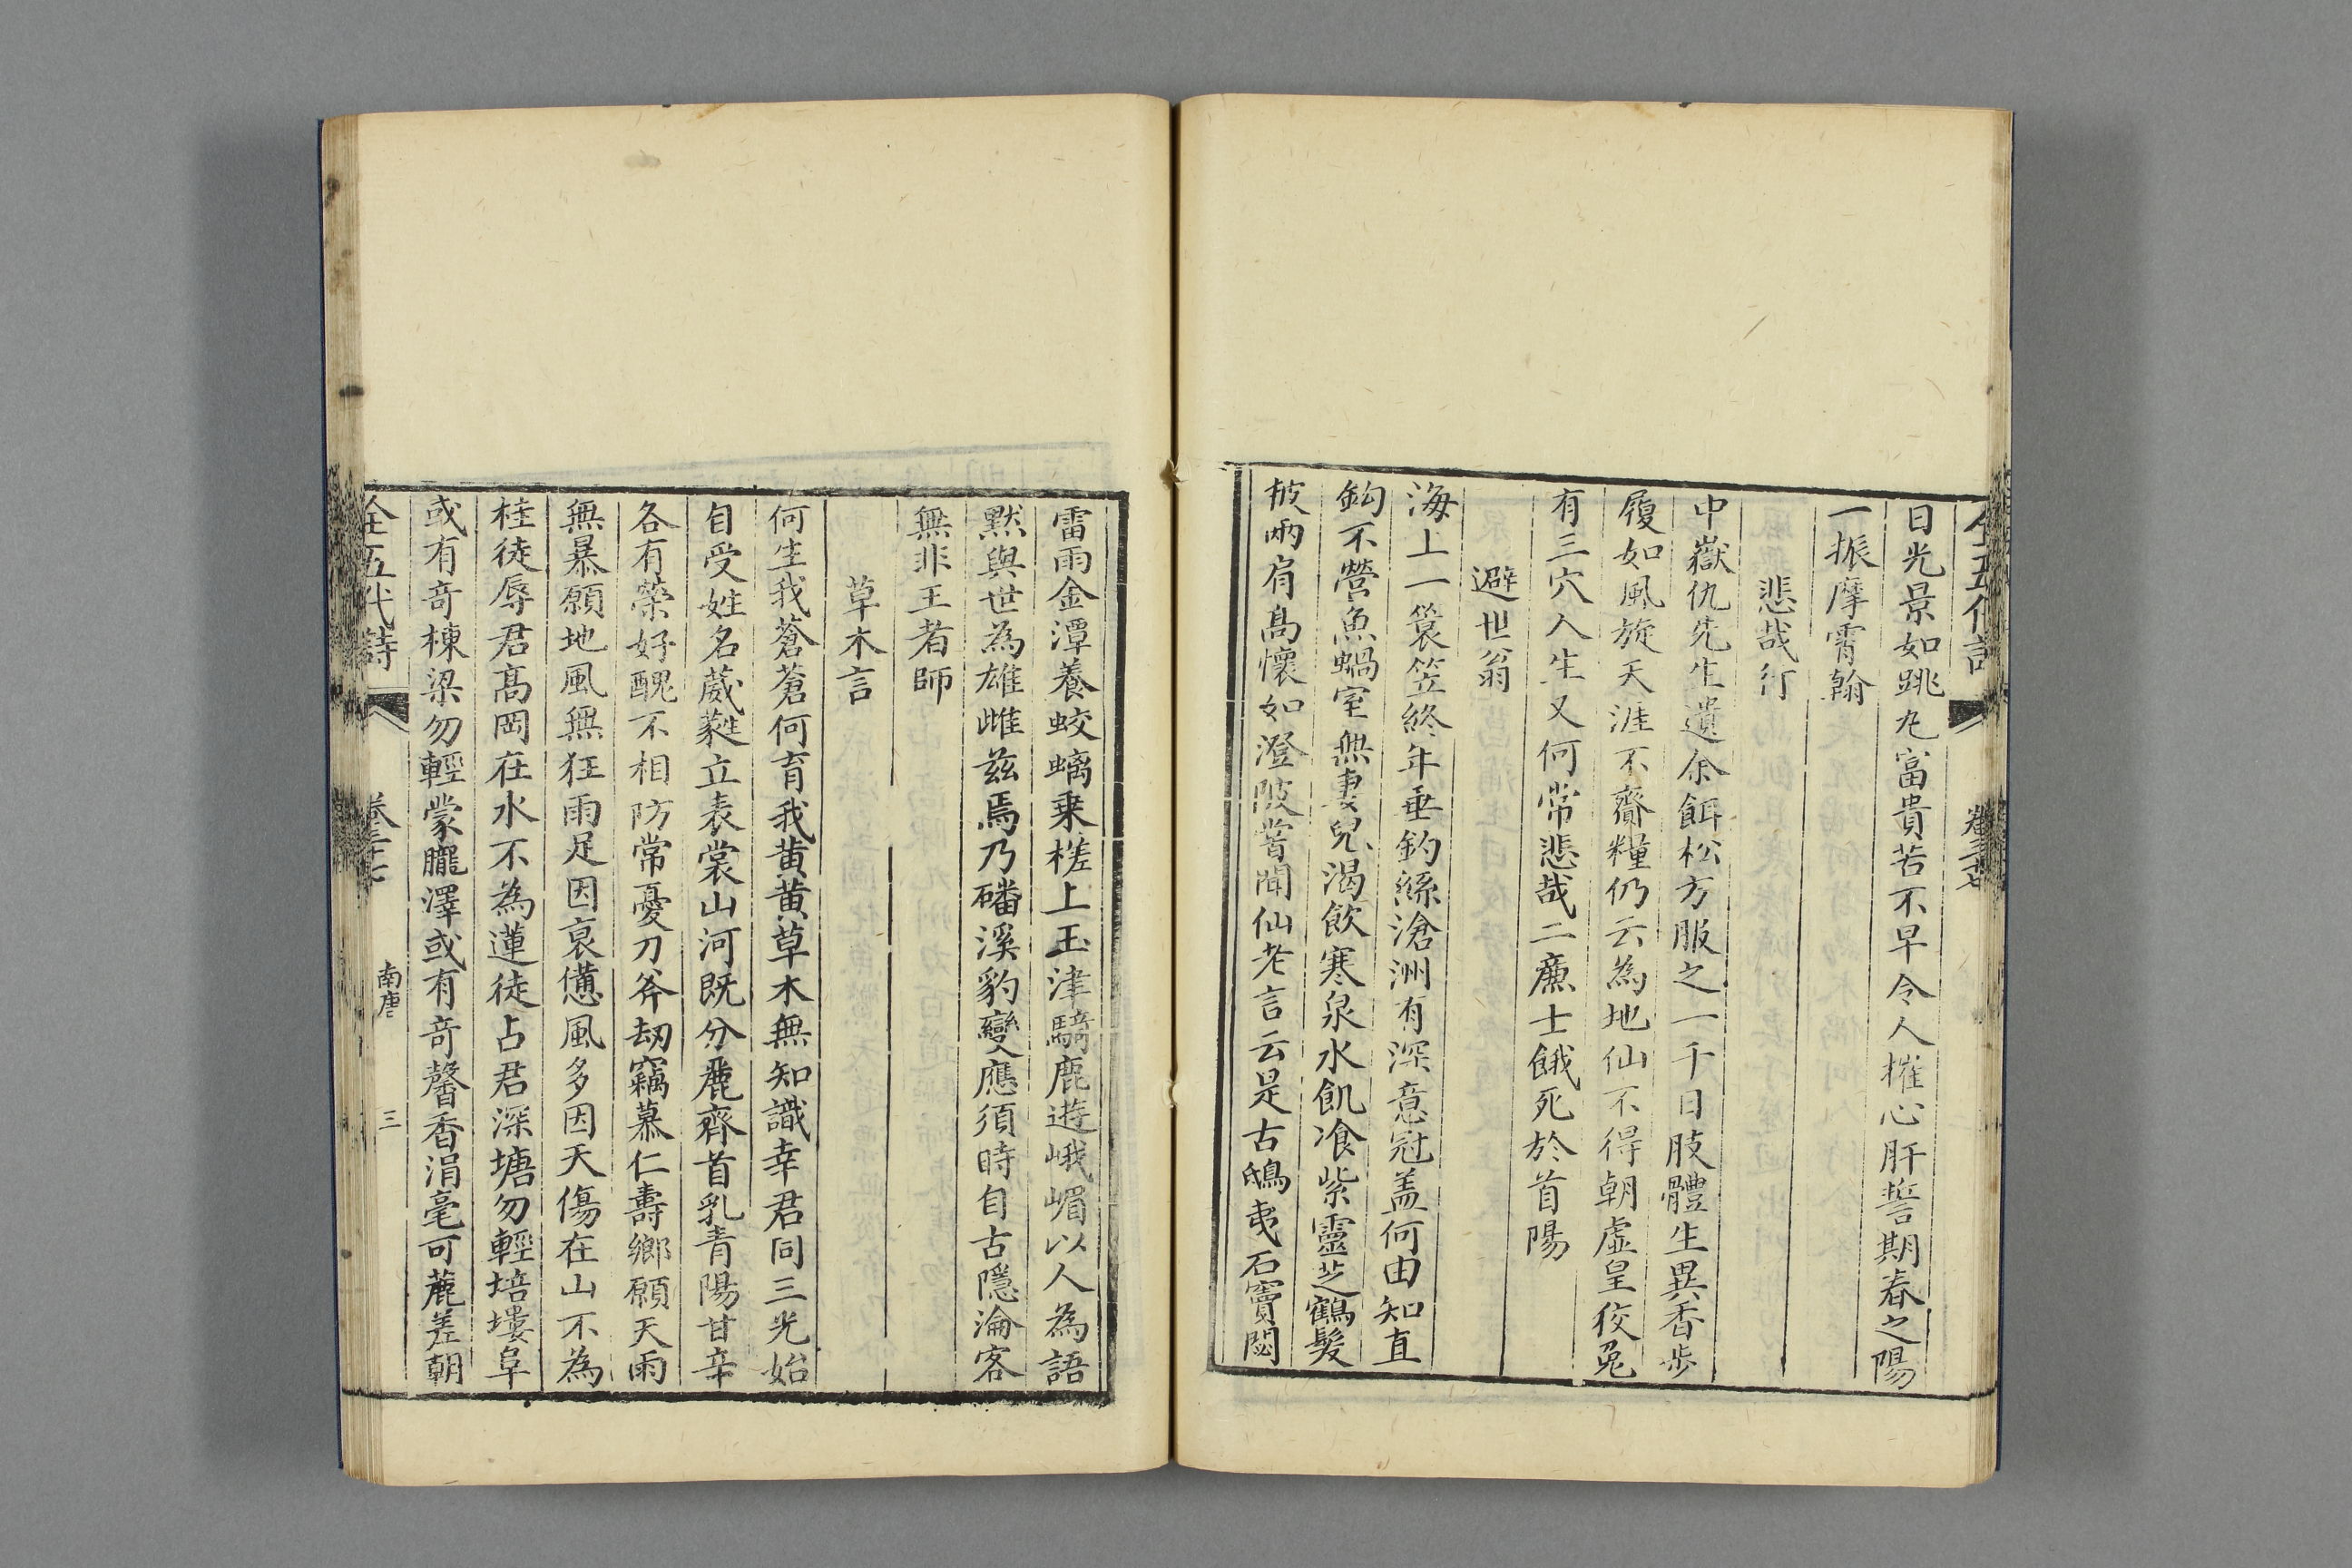 全五代詩 卷三十七
日光景如跳丸富貴苦不早令人摧心肝誓期春之陽
一振摩霄翰
悲哉行
中嶽仇先生遺余餌松方服之一千日肢體生異香步
履如風旋天涯不齎糧仍云為地仙不得朝虛皇狡兔
有三穴人生又何常悲哉二廉士餓死於首陽
避世翁
海上一簑笠終年垂釣絲滄洲有深意冠盖何由知直
鈎不營魚蝸室無妻兒渴飲寒泉水飢飡紫靈芝鶴髮
披兩肩高懷如澄陂嘗聞仙老言云是古鴟夷石竇閟
雷雨金潭養蛟螭乗槎上玉津騎鹿遊峨嵋以人為語
默與世為雄雌兹焉乃磻溪豹變應須時自古隱淪客
無非王者師
草木言
何生我蒼蒼何育我黄黄草木無知識幸君同三光始
自受姓名葳蕤立表裳山河既分麗齊首乳青陽甘辛
各有榮好醜不相防常憂刀斧刼竊慕仁壽鄉願天雨
無暴願地風無狂雨足因衰憊風多因夭傷在山不為
桂徒辱君高岡在水不為蓮徒占君深塘勿輕培塿阜
或有奇棟梁勿輕蒙朧澤或有奇馨香涓毫可麤差朝
全五代詩 卷三十七 南唐 三